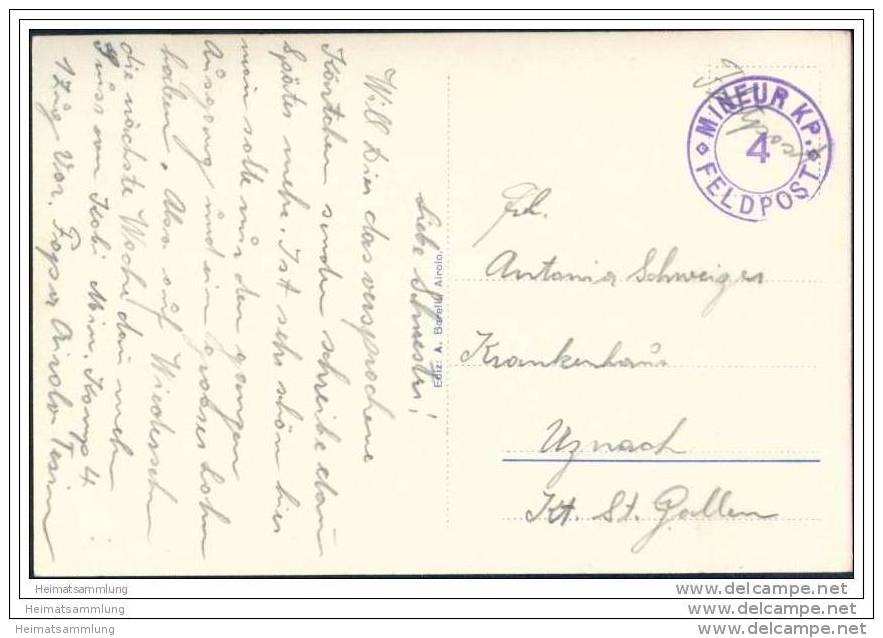 Liebe Schwester!
Will Dir das versprochene
Kärtchen senden schreibe dan
Später mehr. Ist sehr schön hier
man sollte nur den ganzen
Ausgang und ein grosses Lohn
haben. Also auf Wiedersehn
die nächste Woche dan mehr
Gruss von Kobi Min. Komp 4
1 Zug Vor. Airolo Tessin
Ediz. A. Borelli, Airolo.
Feldpost
MINEUR KP.
4
FELDPOST
Frl.
Antonia Schweiger
Krankenhaus
Uznach
Kt. St. Gallen
Heimatsammlung
Heimatsammlung
Heimatsammlung
www.delcampe.net
www.delcampe.net
www.delcampe.net